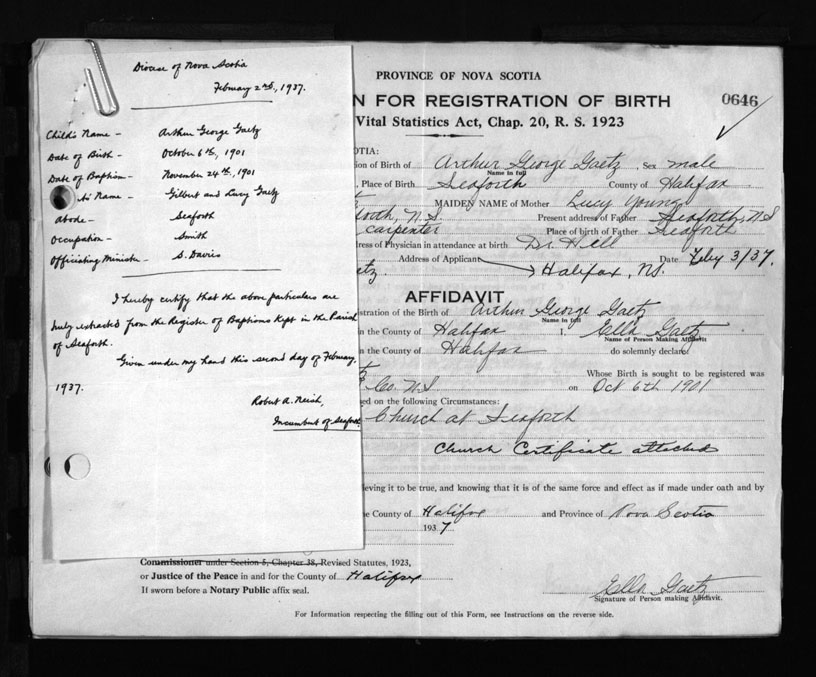 Diocese of Nova Scotia
February 2nd, 1937.
Child's Name - Arthur George Gaetz
Date of Birth - October 6th, 1901
Date of Baptism - November 24th, 1901
Name - Gilbert and Lucy Gaetz
Abode - Seaforth
Occupation - Smith
Officiating Minister - S. Davis
I hereby certify that the above particulars are
truly extracted from the Register of Baptisms Kept in the Parish
of Seaforth.
Given under my hand this second day of February,
1937.
Robert A. Neish,
Incumbent of Seaforth
PROVINCE OF NOVA SCOTIA
N FOR REGISTRATION OF BIRTH 0646
Vital Statistics Act, Chap. 20, R. S. 1923
OTIA:
ion of Birth of Arthur George Gaetz, Sex male
Name in full
, Place of Birth Seaforth County of Halifax
MAIDEN NAME of Mother Lucy Young
forth, N.S. Present address of Father Seaforth, N.S
carpenter Place of birth of Father Seaforth
dress of Physician in attendance at birth Dr. Hill
etz. Address of Applicant Halifax, NS. Date Feby 3/37.
AFFIDAVIT
stration of the Birth of Arthur George Gaetz
Name in full
n the County of Halifax I, Ella Gaetz
Name of Person Making Affidavit
n the County of Halifax do solemnly declare
Whose Birth is sought to be registered was
Co. N.S on Oct 6th 1901
ed on the following Circumstances:
Church at Seaforth
Church Certificate attached
ieving it to be true, and knowing that it is of the same force and effect as if made under oath and by
e County of Halifax and Province of Nova Scotia
1937
Commissioner under Section 5, Chapter 38, Revised Statutes, 1923,
or Justice of the Peace in and for the County of Halifax
If sworn before a Notary Public affix seal.
Ella Gaetz
Signature of Person making Affidavit.
For Information respecting the filling out of this Form, see Instructions on the reverse side.